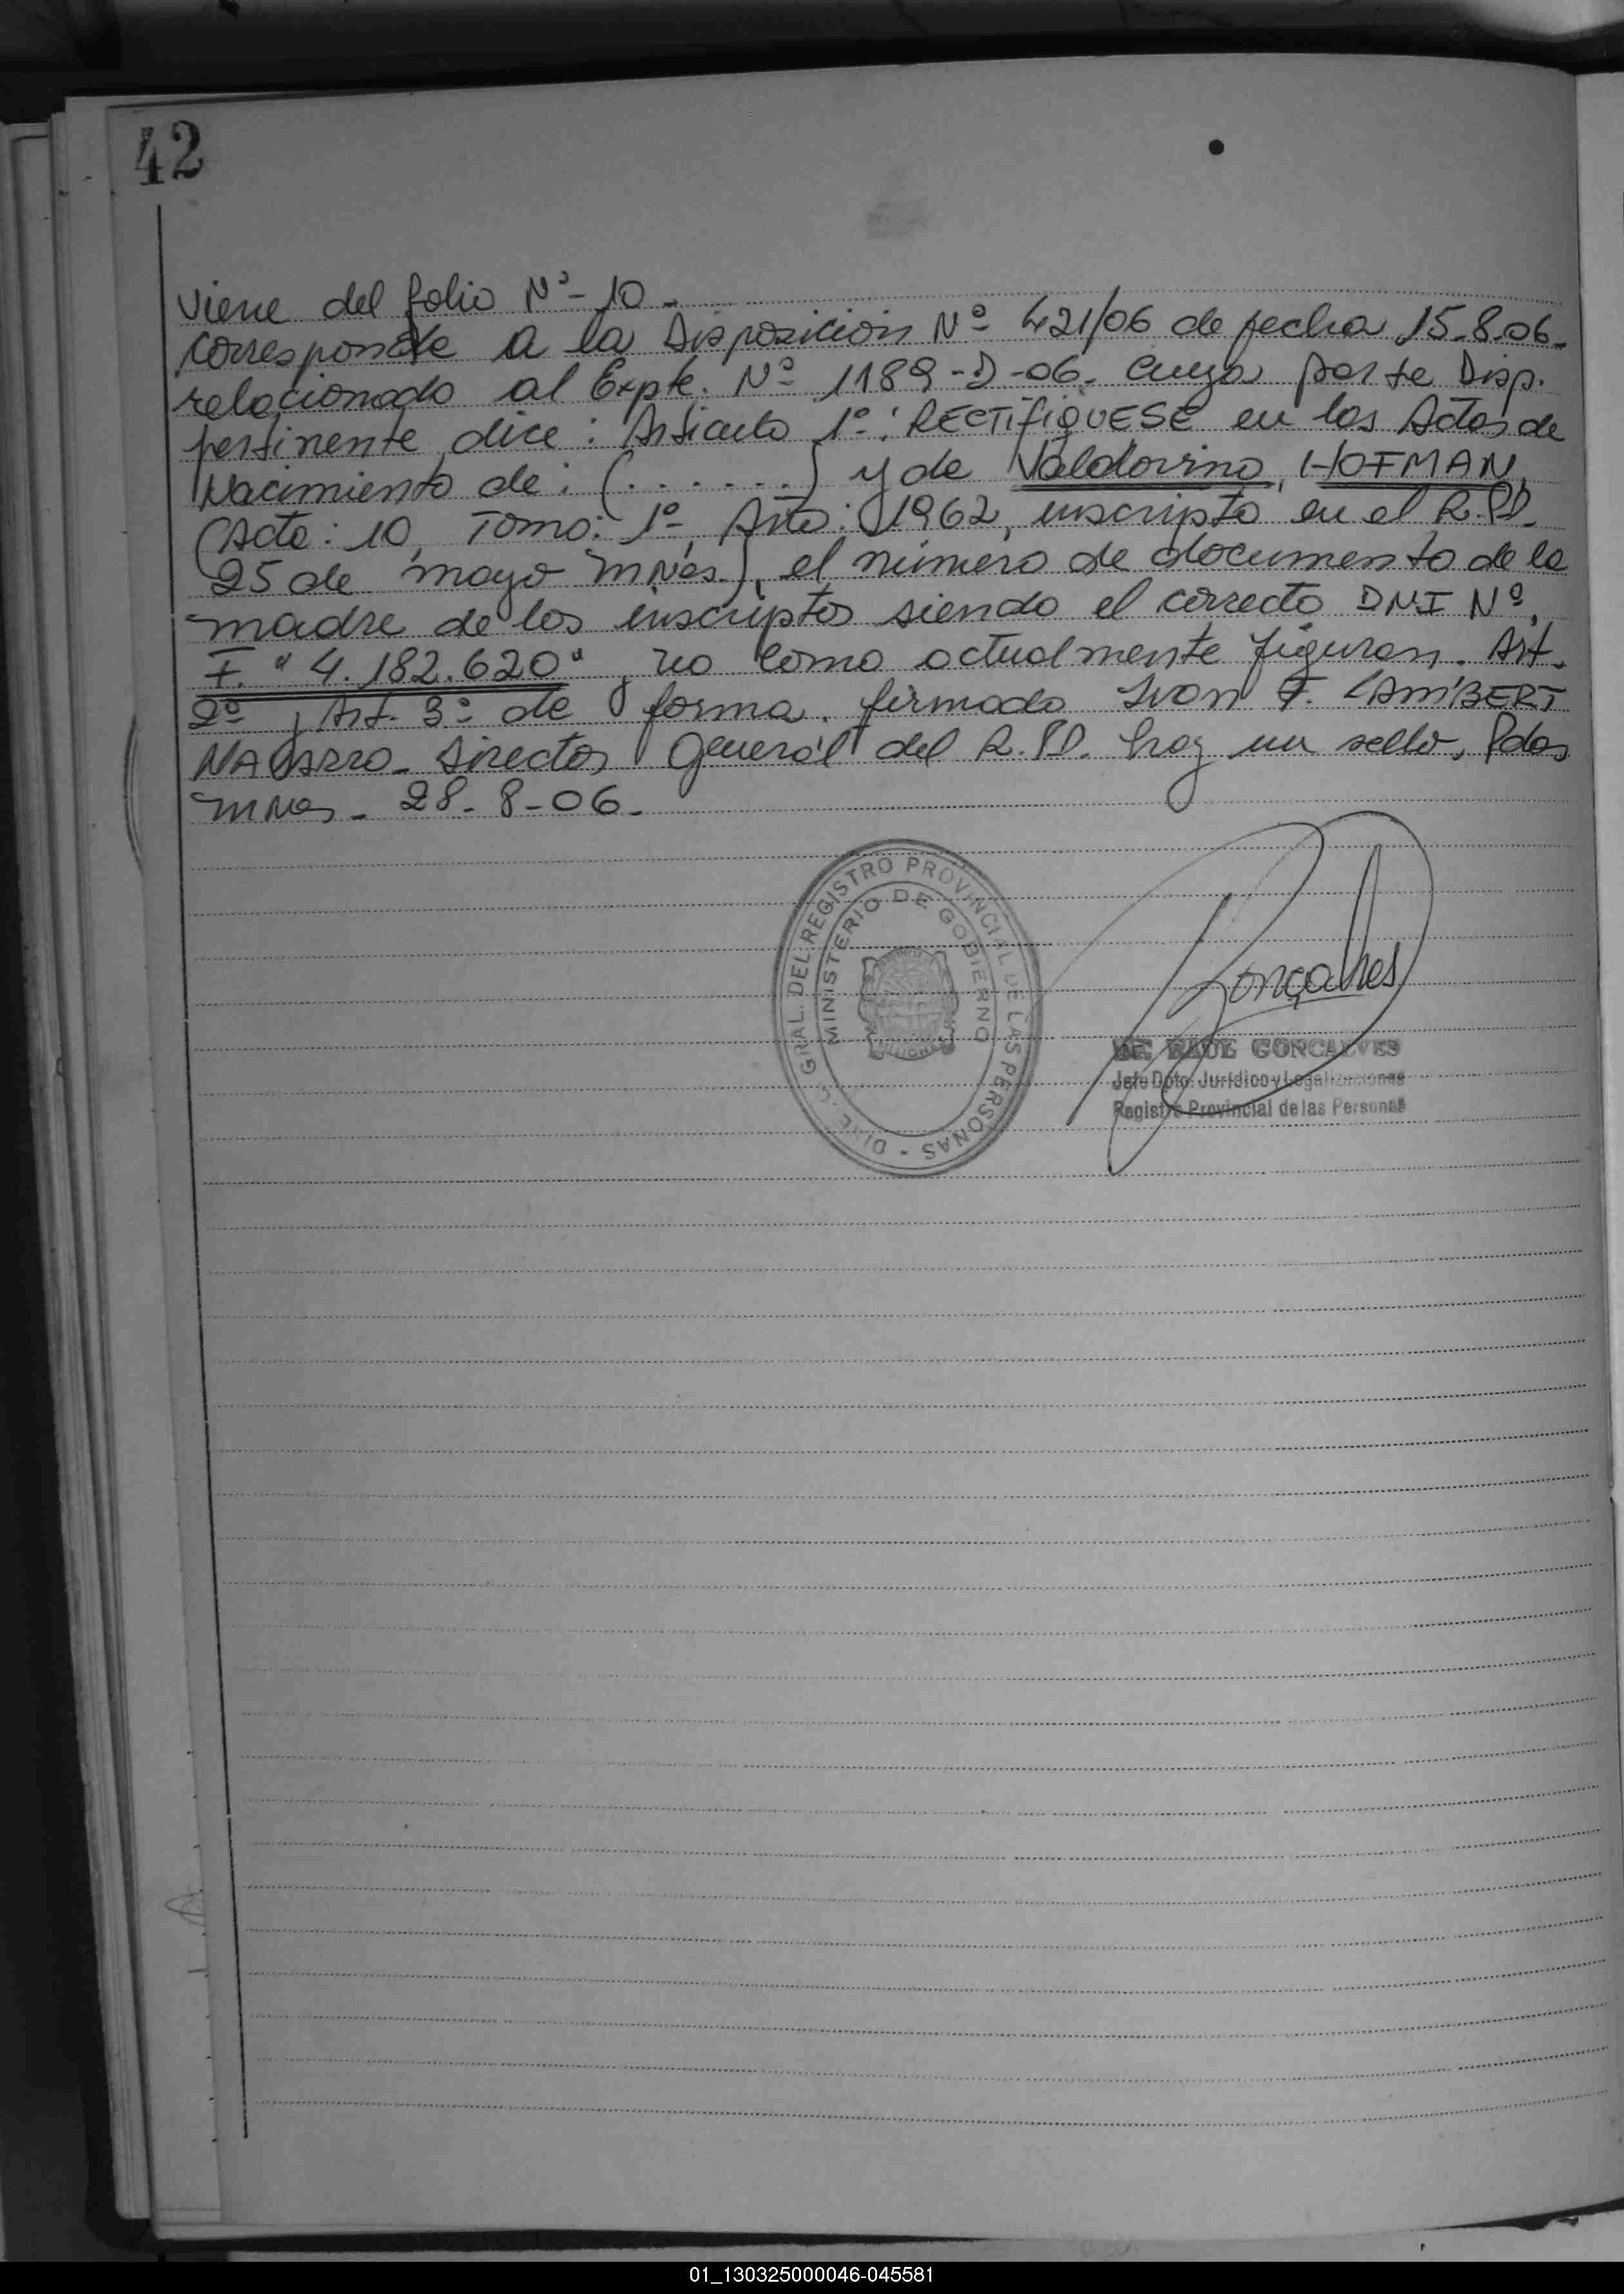 42
Viene del folio Nº- 10 -
corresponde a la Disposición Nº 421/06 de fecha 15-8-06-
relacionado al Expte. Nº 1189-D-06- cuya parte Disp.
pertinente dice: Articulo 1º: RECTIFIQUESE en las Actas de
Nacimiento de: (. . . . . .) y de Valdovino, HOFMAN,
(Acta: 10, Tomo: 1º, Año: 1962, inscripto en el R.P.P.
25 de mayo Mnes.), el número de documento de la
madre de los inscriptos siendo el correcto DNI Nº,
F. "4.182.620" y no como actualmente figuran. Art.
2º y Art. 3º de forma. firmado Ivan F. LAMBERT
NAVARRO - Director General del R.P.P. hay un sello, Pdas
Mnes - 28-8-06-
DIREC. GRAL. DEL REGISTRO PROVINCIAL DE LAS PERSONAS -
MINISTERIO DE GOBIERNO
MISIONES
Gonçalves
RAUL GONCALVES
Jefe Dpto. Jurídico y Legalizaciones
Registro Provincial de las Personas
01_130325000046-045581